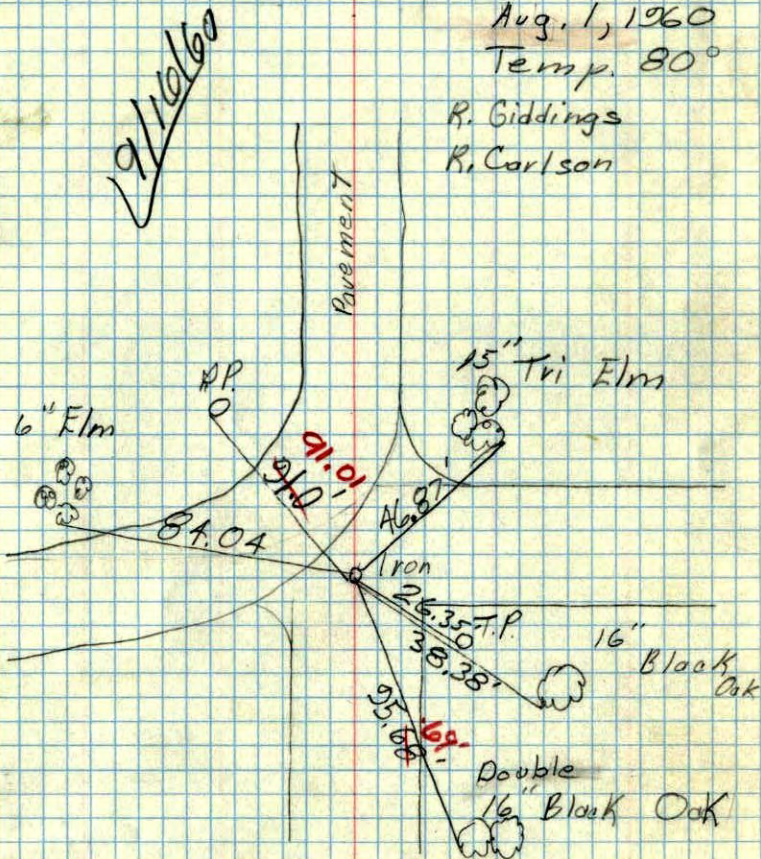 Aug. 1, 1960
Temp. 80°
R. Giddings
R. Carlson
9/16/60
Pavement
15" Tri Elm
A.P.
6" Elm
91.01
91.0'
46.87'
84.04
Iron
26.35'
T.P.
38.38'
16"
Black
Oak
95.68'
.69'
Double
16" Black Oak